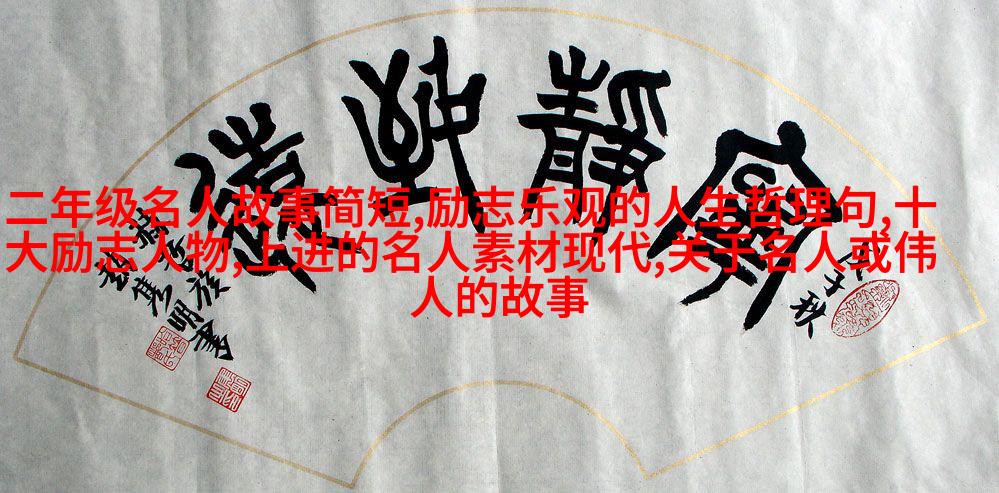 寧靜致遠
二年级名人故事简短,励志乐观的人生哲理句,十
大励志人物,上进的名人素材现代,关于名人或伟
人的故事
子秋